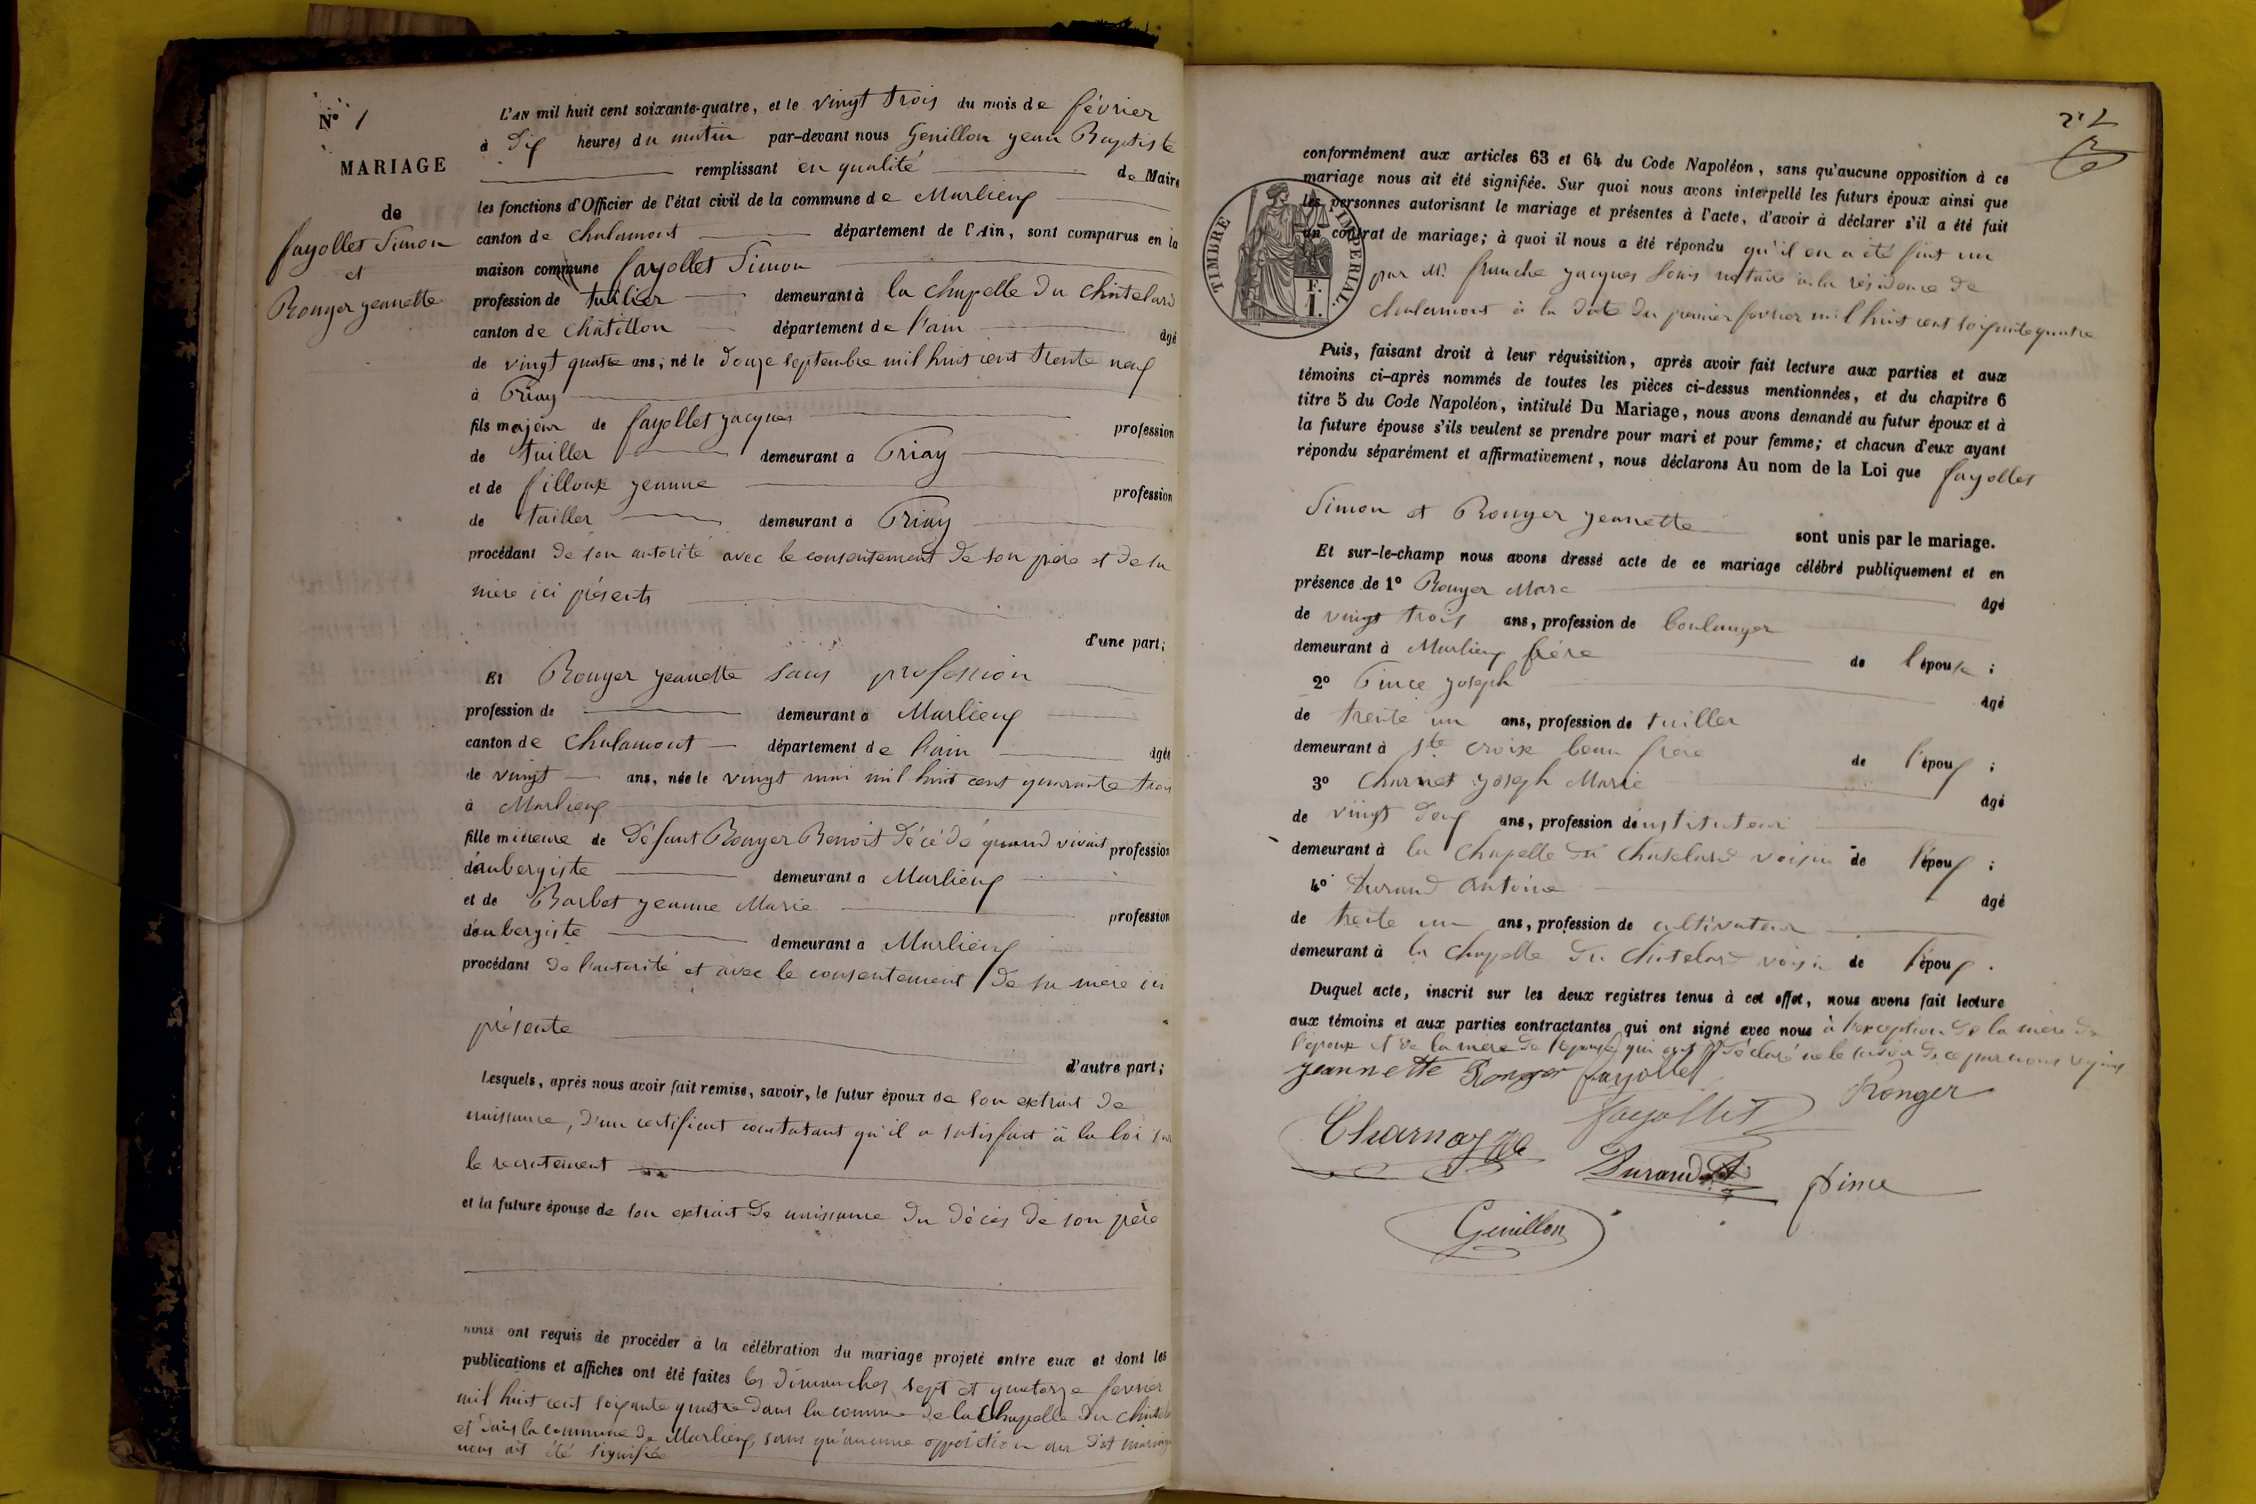 N° 1
MARIAGE
de
fayollet Simon
et
Rouyer jeanette
L'AN mil huit cent soixante-quatre, et le vingt trois du mois de février
à dix heures du matin par-devant nous Genillon jean Baptiste
remplissant en qualité de Maire
les fonctions d'Officier de l'état civil de la commune de Marlieux
canton de chalamont département de l'Ain, sont comparus en la
maison commune fayollet Simon
profession de tuilier demeurant à la chapelle du châtelard
canton de châtillon département de l'ain âgé
de vingt quatre ans, né le douze septembre mil huit cent trente neuf
à Priay
fils majeur de fayollet jacques profession
de tuiller demeurant à Priay
et de filloux jeanne profession
de tuiller demeurant à Priay
procédant de son autorité avec le consentement de son père et de sa
mère ici présents
d'une part;
Et Rouyer jeanette sans profession
profession de demeurant à Marlieux
canton de chalamont département de l'ain âgée
de vingt ans, née le vingt mai mil huit cent quarante trois
à Marlieux
fille mineure de défunt Rouyer Benoit décédé quand vivait profession
d'aubergiste demeurant à Marlieux
et de Barbet jeanne Marie profession
d'aubergiste demeurant à Marlieux
procédant de l'autorité et avec le consentement de sa mère ici
présente
d'autre part;
Lesquels, après nous avoir fait remise, savoir, le futur époux de son extrait de
naissance, d'un certificat constatant qu'il a satisfait à la loi sur
le recrutement
et la future épouse de son extrait de naissance du décès de son père
nous ont requis de procéder à la célébration du mariage projeté entre eux et dont les
publications et affiches ont été faites les dimanches sept et quatorze fevrier
mil huit cent soixante quatre dans la commune de la Chapelle du châtelard
et dans la commune de Marlieux, sans qu'aucune opposition au dit mariage
nous ait été signifiée
conformément aux articles 63 et 64 du Code Napoléon, sans qu'aucune opposition à ce
mariage nous ait été signifiée. Sur quoi nous avons interpellé les futurs époux ainsi que
les personnes autorisant le mariage et présentes à l'acte, d'avoir à déclarer s'il a été fait
un contrat de mariage; à quoi il nous a été répondu qu'il en a été fait un
par Mr. franche jacques Louis notaire à la résidence de
chalamont à la date du premier fevrier mil huit cent soixante quatre
TIMBRE IMPERIAL.
F.
1.
Puis, faisant droit à leur réquisition, après avoir fait lecture aux parties et aux
témoins ci-après nommés de toutes les pièces ci-dessus mentionnées, et du chapitre 6
titre 5 du Code Napoléon, intitulé Du Mariage, nous avons demandé au futur époux et à
la future épouse s'ils veulent se prendre pour mari et pour femme; et chacun d'eux ayant
répondu séparément et affirmativement, nous déclarons Au nom de la Loi que fayollet
Simon et Rouyer jeanette sont unis par le mariage.
Et sur-le-champ nous avons dressé acte de ce mariage célébré publiquement et en
présence de 1° Rouyer Marc âgé
de vingt trois ans, profession de boulanger
demeurant à Marlieux frère de l'épouse;
2° Pince joseph âgé
de trente un ans, profession de tuiller
demeurant à Ste croix beau frère de l'époux;
3° Charnet joseph Marie âgé
de vingt deux ans, profession d'instituteur
demeurant à la chapelle du chatelard voisin de l'époux;
4° Durand Antoine âgé
de trente un ans, profession de cultivateur
demeurant à la chapelle du chatelard voisin de l'époux.
Duquel acte, inscrit sur les deux registres tenus à cet effet, nous avons fait lecture
aux témoins et aux parties contractantes qui ont signé avec nous à l'exception de la mère de
l'époux et de la mère de l'épouse qui ont déclaré ne le savoir de ce par nous requis
jeannette Ronger fayollet
fayollet Ronger
Charnay
Durand Pince
Genillon